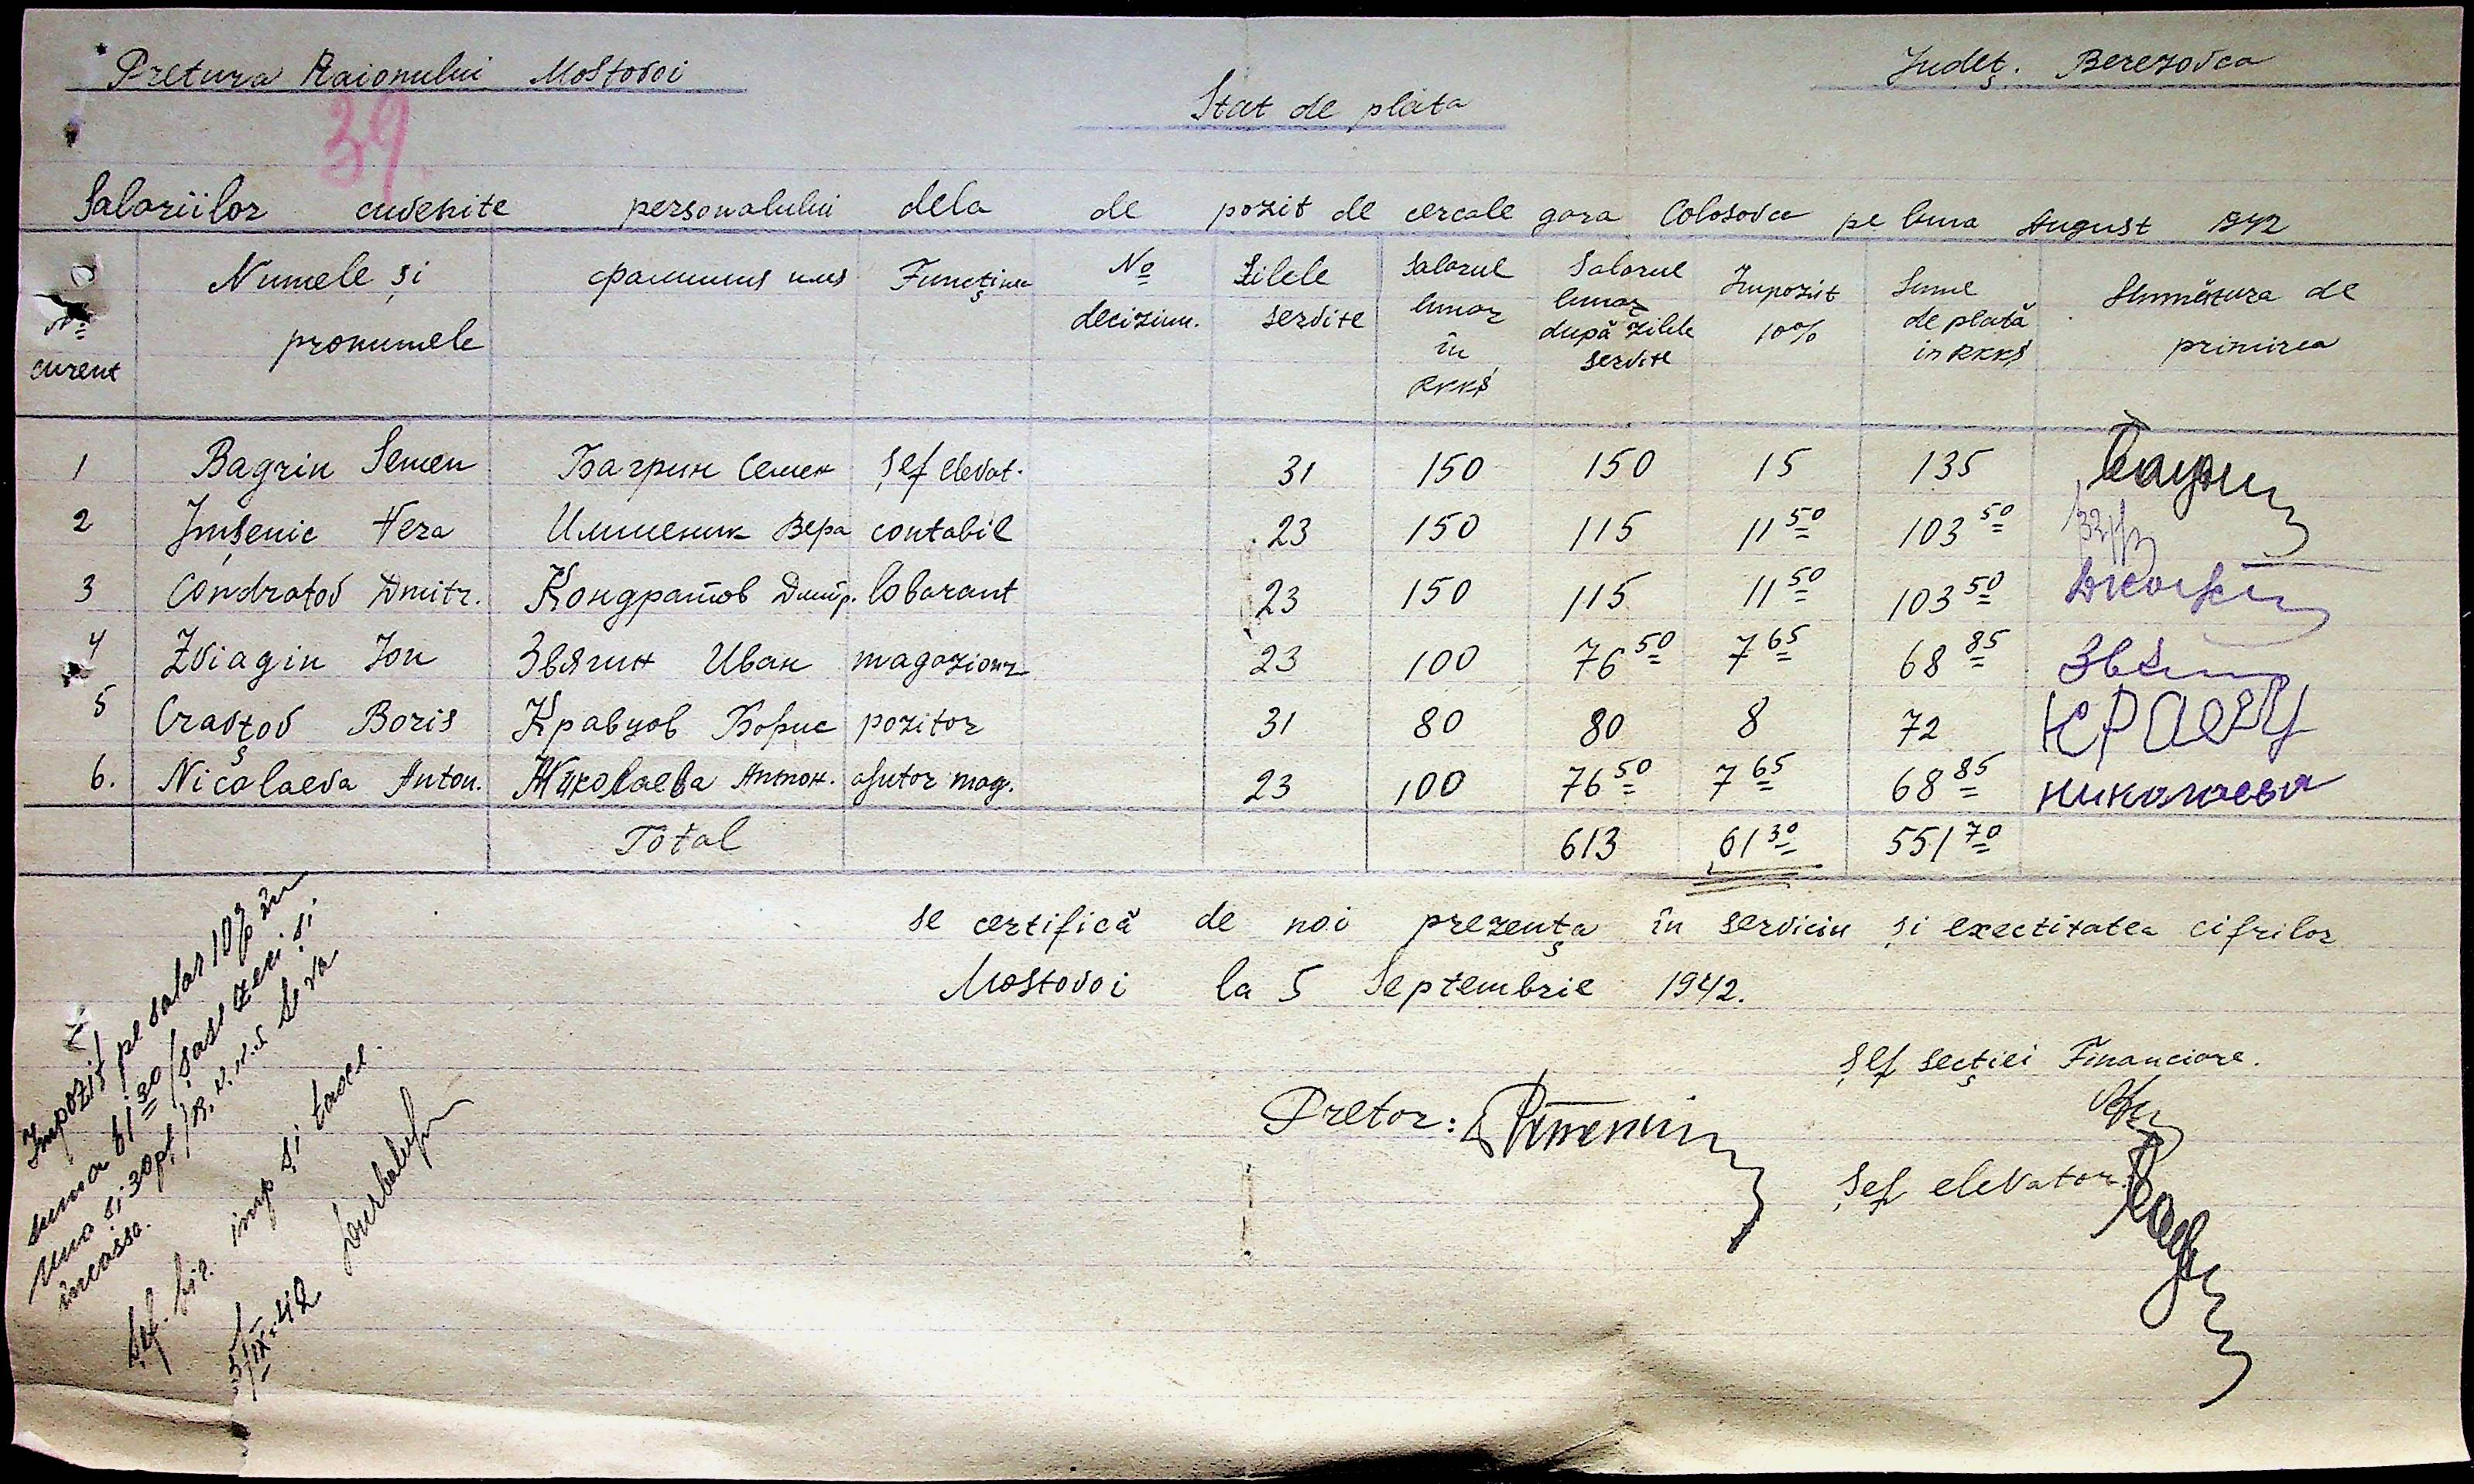 Pretura Raionului Mostovoi
Județ. Berezovca
39.
Stat de plata
Salariilor cuvenite personalului dela de pozit de cereale gara Colosovca pe luna August 1942
No curent | Numele și pronumele | фамилия имя | Funcțiunea | No deciziun. | Zilele servite | Salarul lunar în RKKS | Salarul lunar după zilele servite | Impozit 10% | Sume de plată in RKKS | Semnătura de primirea
1 Bagrin Semen Багрин Семен șef elevat. 31 150 150 15 135
2 Imșenic Vera Имшеник Вера contabil 23 150 115 11 50 103 50
3 Condratov Dmitr. Кондратов Дмитр. labarant 23 150 115 11 50 103 50
4 Zviagin Ion Звягин Иван magazionr 23 100 76 50 7 65 68 85
5 Cravțov Boris Кравцов Борис pozitor 31 80 80 8 72
6. Nicolaeva Anton. Николаева Антон. ajutor mag. 23 100 76 50 7 65 68 85 николаева
Total 613 61 30 551 70
se certifică de noi prezența în serviciu și exectitatea cifrilor
Mostovoi la 5 Septembrie 1942.
Șef secției Financiare.
Pretor:
Șef elevator
Impozit pe salar 10% în
suma 61 30 /șase zeci și
una și 30 pf/ R. se va
incassa.
Șef. bir. imp și taxe.
5/IX-42